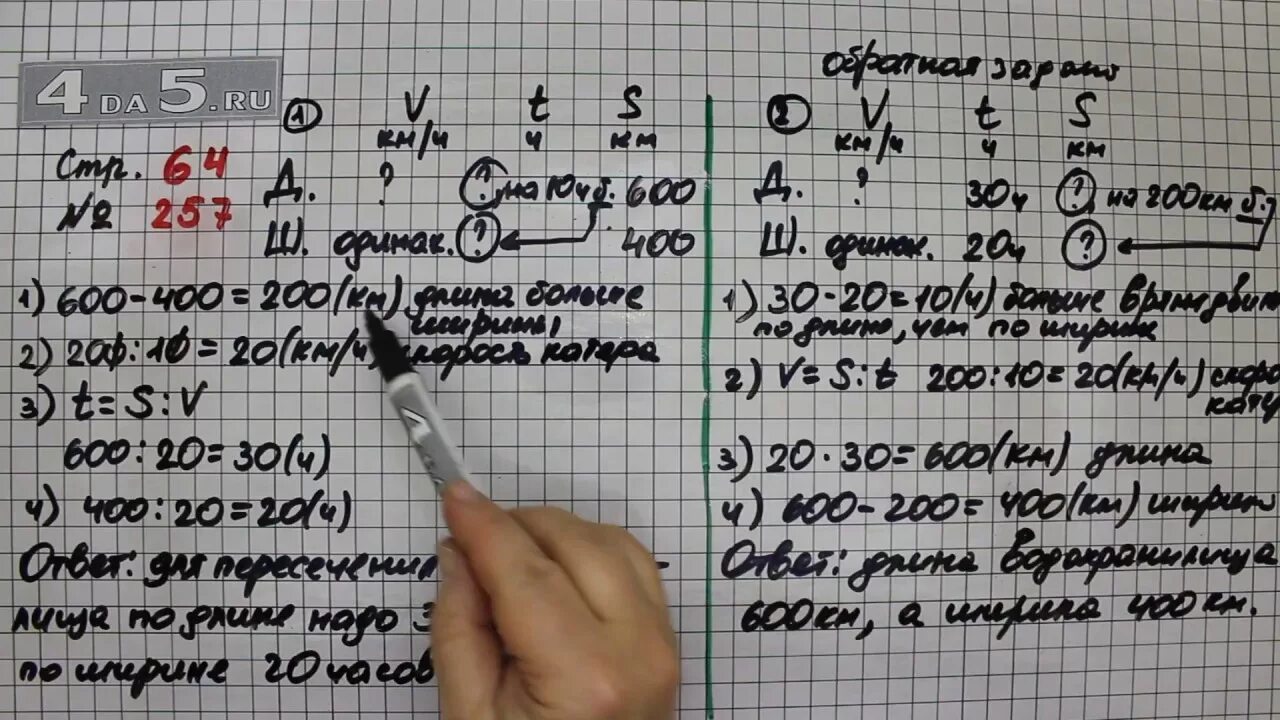 4 DA 5.RU
Стр. 64
№ 257
① V t S
км/ч ч км
Д. ? ? на 10ч б. 600
Ш. одинак. ? 400
1) 600-400=200(км) длина больше
ширины
2) 200:10=20(км/ч) скорость катера
3) t=S:V
600:20=30(ч)
4) 400:20=20(ч)
Ответ: для пересечения
лища по длине надо 3
по ширине 20 часов
обратная задача
② V t S
км/ч ч км
Д. ? 30ч ? на 200км б.
Ш. одинак. 20ч ?
1) 30-20=10(ч) больше время
по длине, чем по ширине
2) V=S:t 200:10=20(км/ч) скоро
кате
3) 20·30=600(км) длина
4) 600-200=400(км) ширина
Ответ: длина водохранилища
600км, а ширина 400км.